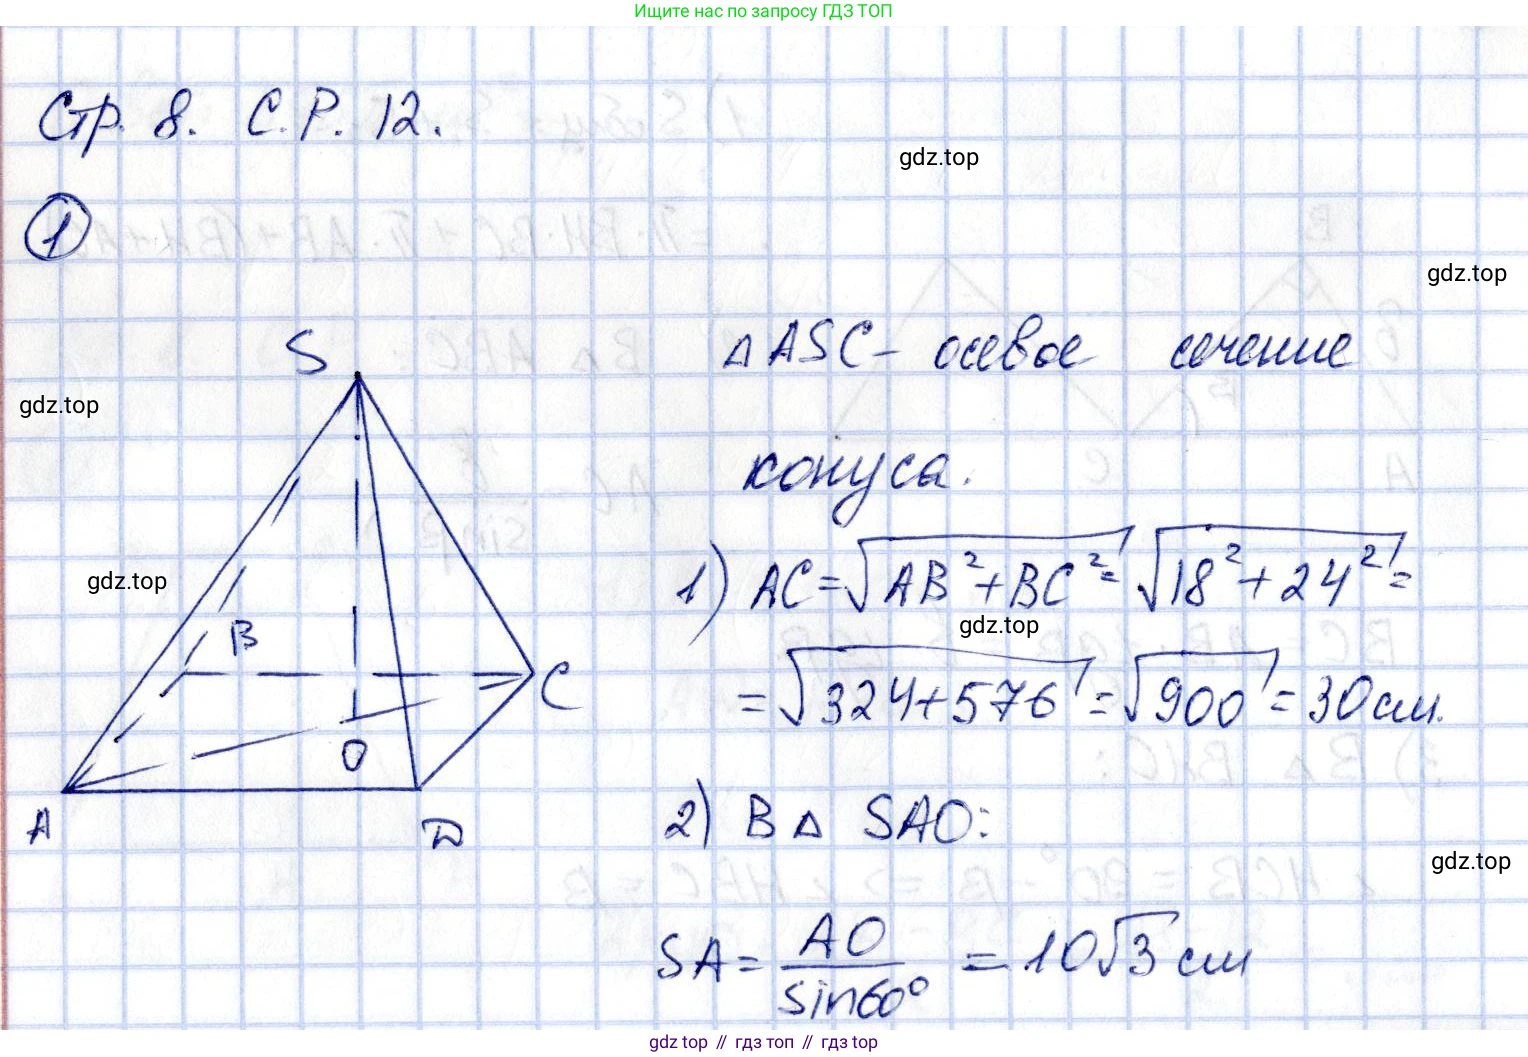 Ищите нас по запросу ГДЗ ТОП
Стр. 8. С.Р. 12.
gdz.top
1
gdz.top
S
△ASC – осевое сечение
gdz.top
конуса.
gdz.top
1) AC = √AB²+BC² = √18²+24² =
gdz.top
B
C
= √324+576 = √900 = 30 см.
O
A
D
2) В △ SAO:
gdz.top
SA = AO / sin60° = 10√3 см
gdz.top // гдз топ // гдз.top